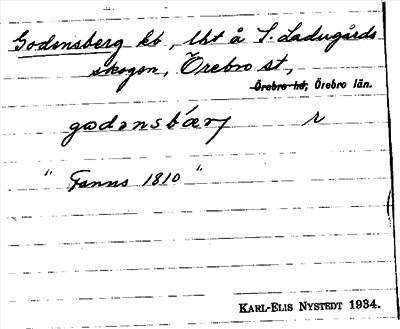 Godensberg kb, lht å S. Ladugårds
skogen, Örebro st,
Örebro hd, Örebro län.
godənsbærj r
" Fanns 1810 "
KARL-ELIS NYSTEDT 1934.